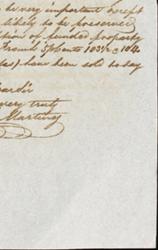 be very important except
likely to be preserved
sion of funded property
French 5 p Cents 103 1/2 @ 104
have been sold to day
very truly